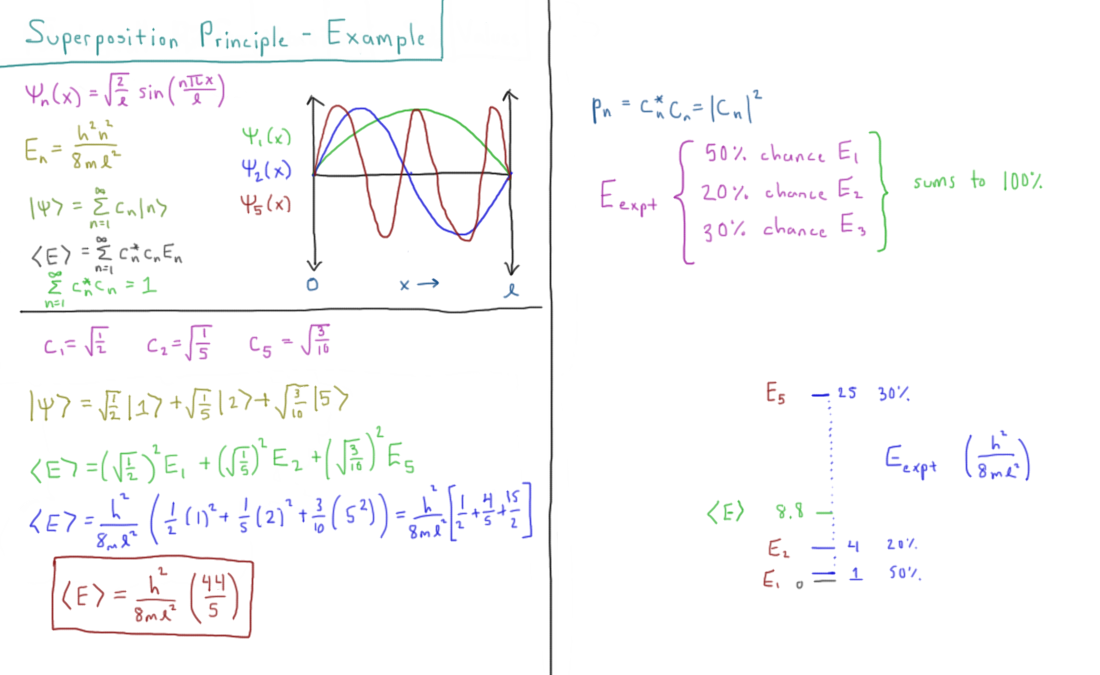 Superposition Principle - Example
Ψₙ(x) = √(2/ℓ) sin(nπx/ℓ)
Eₙ = h²n²/8mℓ²
|Ψ> = Σₙ₌₁^∞ cₙ|n>
<E> = Σₙ₌₁^∞ cₙ*cₙEₙ
Σₙ₌₁^∞ cₙ*cₙ = 1
Ψ₁(x)
Ψ₂(x)
Ψ₅(x)
0 x → ℓ
c₁ = √(1/2) c₂ = √(1/5) c₅ = √(3/10)
|Ψ> = √(1/2)|1> + √(1/5)|2> + √(3/10)|5>
<E> = (√(1/2))²E₁ + (√(1/5))²E₂ + (√(3/10))²E₅
<E> = h²/8mℓ² (1/2(1)² + 1/5(2)² + 3/10(5²)) = h²/8mℓ² [1/2 + 4/5 + 15/2]
<E> = h²/8mℓ² (44/5)
pₙ = cₙ*cₙ = |cₙ|²
E_expt { 50% chance E₁
20% chance E₂
30% chance E₃ } sums to 100%
E₅ 25 30%
E_expt (h²/8mℓ²)
<E> 8.8
E₂ 4 20%
E₁ 0 1 50%